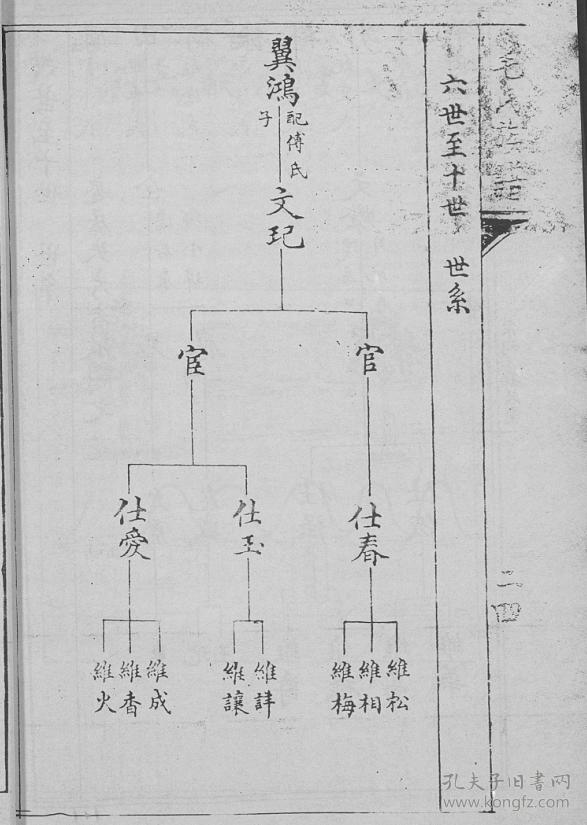 毛氏族譜
二四
六世至十世 世系
翼鴻
配傅氏
子
文玘
官
宦
仕春
仕玉
仕愛
維松
維相
維梅
維讓
維成
維香
維火
孔夫子旧书网
www.kongfz.com